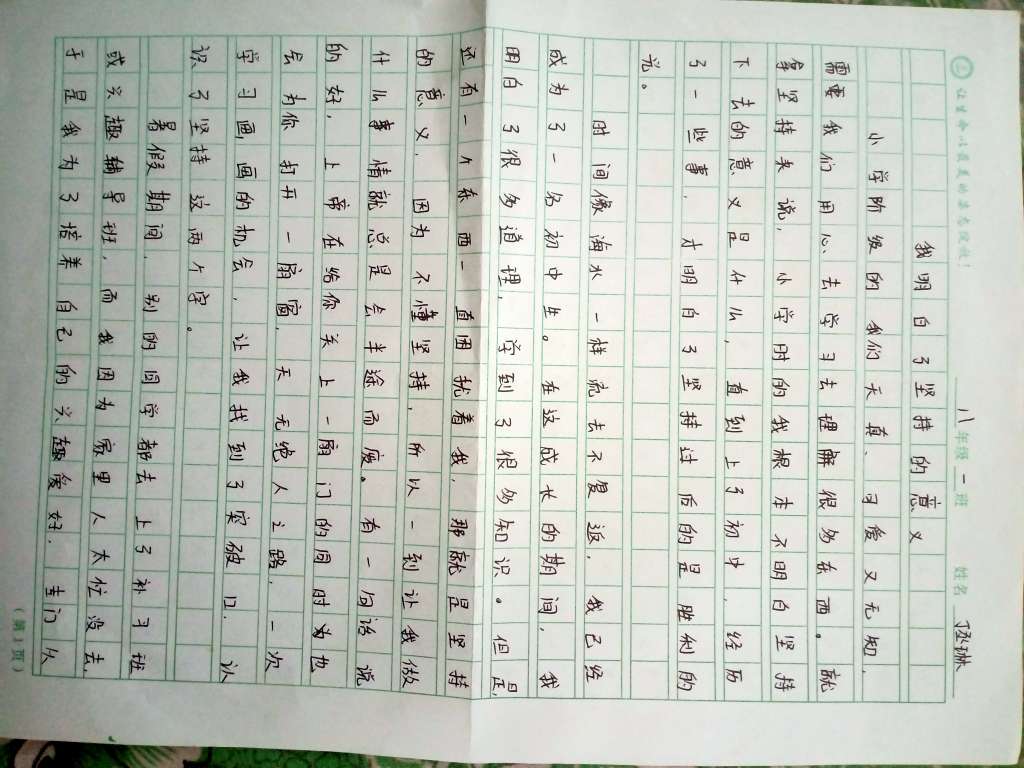 让生命以最美的姿态绽放！
八年级一班 姓名
我明白了坚持的意义
小学阶级的我们天真、可爱又无知,
需要我们用心去学习去理解很多东西。就
拿坚持来说,小学时的我根本不明白坚持
下去的意义是什么,直到上了初中,经历
了一些事,才明白了坚持过后的是胜利的
光。
时间像海水一样流去不复返,我已经
成为了一名初中生。在这成长的期间,我
明白了很多道理,学到了很多知识。但是,
还有一个东西一直困扰着我,那就是坚持
的意义,因为不懂坚持,所以一到让我做
什么事情就总是会半途而废。有一句话说
的好,上帝在给你关上一扇门的同时也
会为你打开一扇窗,天无绝人之路,一次
学习画画的机会,让我找到了突破口,认
识了坚持这两个字。
暑假期间,别的同学都去上了补习班
或兴趣辅导班,而我因为家里人太忙没去,
于是我为了培养自己的兴趣爱好,专门从
(第1页)